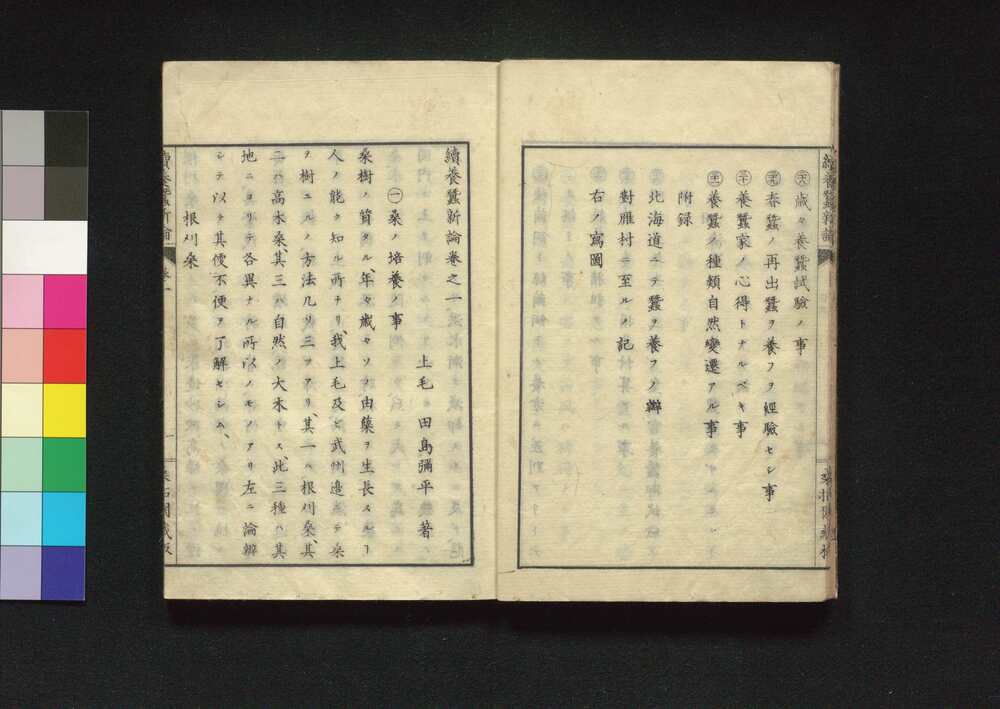 ㊅歳々養蚕試驗ノ事
㊈春蚕ノ再出蚕ヲ養フヲ經驗セシ事
㊁養蚕家ノ心得トナルベキ事
養蚕ノ種類自然變遷アル事
附録
北海道ニテ蚕ヲ養フノ辨
對雁村ニ至ルノ記
右ノ寫圖
續養蚕新論卷之一
上毛 田島彌平 著
㊀桑ノ培養ノ事
桑樹ノ質タル、年々歳々ソノ由蘖ヲ生長スルヿ
人ノ能ク知ル所ナリ、我上毛及ビ武州邉ニテ桑
ヲ樹ユルノ方法凡ソ三ツアリ、其一ハ根刈桑、其
二ハ高木桑、其三ハ自然ノ大木トス、此三種ハ其
地ニヨリテ各異ナル所以ノモノアリ左ニ論辨
シテ以テ其便不便ヲ了解セシム、
根刈桑
續養蚕新論
卷一
一